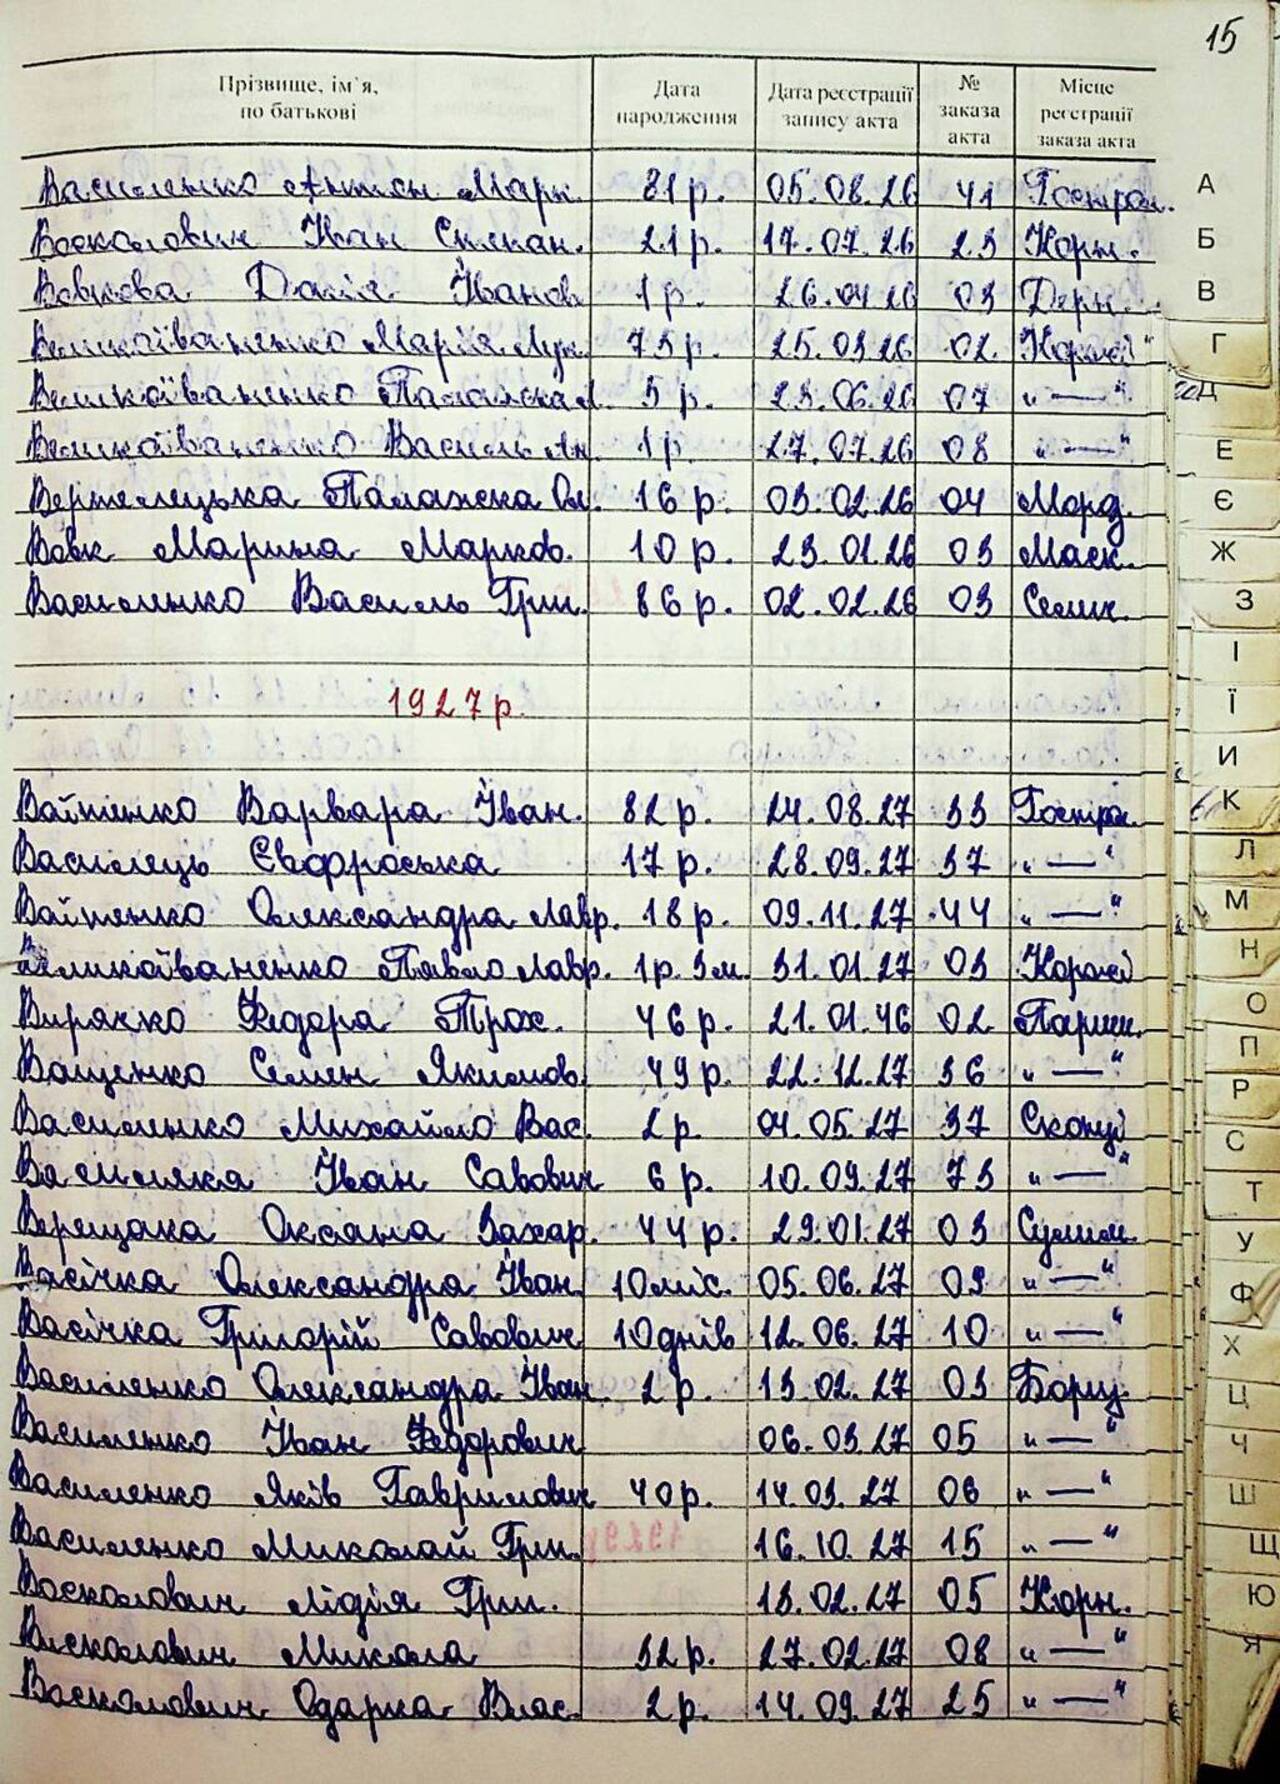 15
Прізвище, ім`я, по батькові | Дата народження | Дата реєстрації запису акта | № заказа акта | Місце реєстрації заказа акта
Василенко Антон Марк. 81 р. 05.08.26 41 Гостром.
Восколович Іван Степан. 21 р. 17.07.26 23 Корн.
Вовкова Дарія Іванов. 1 р. 26.04.26 03 Дерн.
Великоіваненко Марія Лук. 73 р. 25.03.26 02 Королі
Великоїваненко Палажка Л. 5 р. 23.06.26 07 "—"
Великоїваненко Василь Ан. 1 р. 27.07.26 08 "—"
Вертелецька Палажска Ол. 16 р. 03.02.26 04 Морд.
Вовк Марина Марков. 10 р. 23.01.26 03 Маск.
Василенко Василь Гри. 86 р. 02.02.26 03 Селич.
1927 р.
Войтенко Варвара Іван. 82 р. 24.08.27 33 Гостром.
Василець Євфроська 17 р. 28.09.27 37 "—"
Войтенко Олександра Лавр. 18 р. 09.11.27 44 "—"
Великоїваненко Павло Лавр. 1 р. 3 м. 31.01.27 03 Королі
Вирячко Федора Трох. 46 р. 21.01.46 02 Париш.
Ващенко Семен Якимов. 49 р. 22.12.27 36 "—"
Василенко Михайло Вас. 2 р. 04.05.27 37
Василяка Іван Савович 6 р. 10.09.27 73 "—"
Верещака Оксана Захар. 44 р. 29.01.27 03
Васічка Олександра Іван. 10 міс. 05.06.27 09 "—"
Васічка Григорій Савович 10 днів 12.06.27 10 "—"
Василенко Олександра Іван. 2 р. 13.02.27 03 Борщ.
Василенко Іван Федорович 06.03.27 05 "—"
Василенко Яків Гаврилович 40 р. 14.03.27 06 "—"
Василенко Миколай Гри. 16.10.27 15 "—"
Восколович Лідія Гри. 13.02.27 05 Корн.
Восколович Микола 32 р. 27.02.27 08 "—"
Восколович Одарка Влас. 2 р. 14.09.27 25 "—"
А
Б
В
Г
Д
Е
Є
Ж
З
І
Ї
И
К
Л
М
Н
О
П
Р
С
Т
У
Ф
Х
Ц
Ч
Ш
Щ
Ю
Я